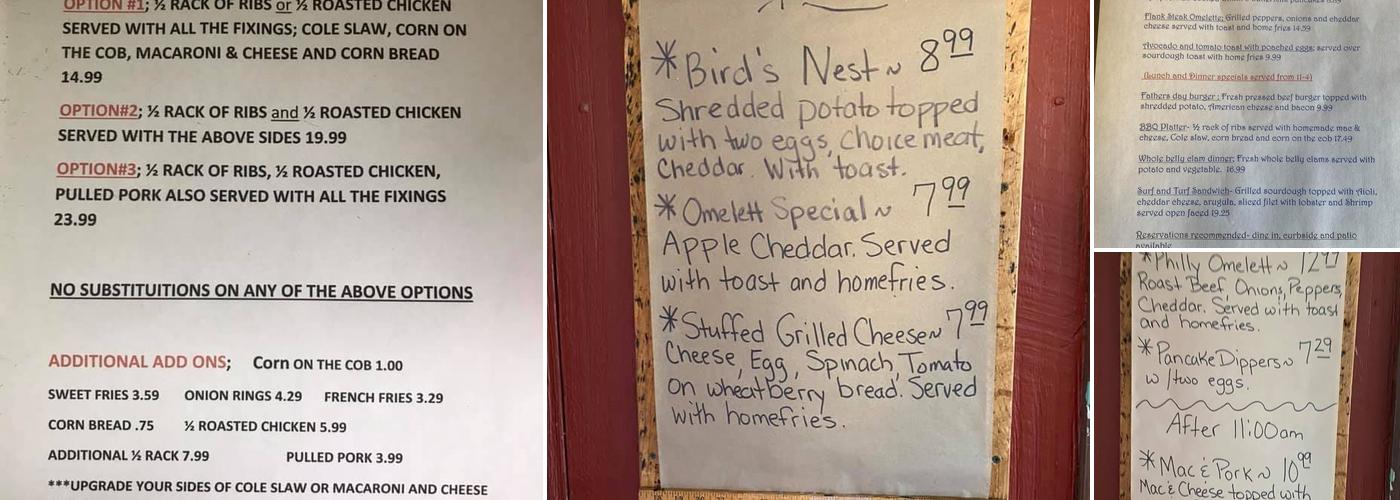 OPTION #1; ½ RACK OF RIBS or ½ ROASTED CHICKEN
SERVED WITH ALL THE FIXINGS; COLE SLAW, CORN ON
THE COB, MACARONI & CHEESE AND CORN BREAD
14.99
OPTION#2; ½ RACK OF RIBS and ½ ROASTED CHICKEN
SERVED WITH THE ABOVE SIDES 19.99
OPTION#3; ½ RACK OF RIBS, ½ ROASTED CHICKEN,
PULLED PORK ALSO SERVED WITH ALL THE FIXINGS
23.99
NO SUBSTITUITIONS ON ANY OF THE ABOVE OPTIONS
ADDITIONAL ADD ONS; Corn ON THE COB 1.00
SWEET FRIES 3.59 ONION RINGS 4.29 FRENCH FRIES 3.29
CORN BREAD .75 ½ ROASTED CHICKEN 5.99
ADDITIONAL ½ RACK 7.99 PULLED PORK 3.99
***UPGRADE YOUR SIDES OF COLE SLAW OR MACARONI AND CHEESE
*Bird's Nest~ 8.99
Shredded potato topped
with two eggs, choice meat,
Cheddar. With toast.
*Omelett Special~ 7.99
Apple Cheddar. Served
with toast and homefries.
*Stuffed Grilled Cheese~ 7.99
Cheese, Egg, Spinach, Tomato
on wheatberry bread. Served
with homefries.
Flank Steak Omelette; Grilled peppers, onions and cheddar
cheese served with toast and home fries 14.59
Avocado and tomato toast with poached eggs; served over
sourdough toast with home fries 9.99
(Lunch and Dinner specials served from 11-4)
Fathers day burger; Fresh pressed beef burger topped with
shredded potato, American cheese and bacon 9.99
BBQ Platter- ½ rack of ribs served with homemade mac &
cheese, Cole slaw, corn bread and corn on the cob 17.49
Whole belly clam dinner; Fresh whole belly clams served with
potato and vegetable. 16.99
Surf and Turf Sandwich- Grilled sourdough topped with Aioli,
cheddar cheese, arugula, sliced filet with lobster and Shrimp
served open faced 19.25
Reservations recommended- dine in, curbside and patio
available
*Philly Omelett~
Roast Beef, Onions, Peppers,
Cheddar. Served with toast
and homefries.
*Pancake Dippers~ 7.29
w/two eggs.
After 11:00am
*Mac & Pork~ 10.99
Mac & Cheese topped with